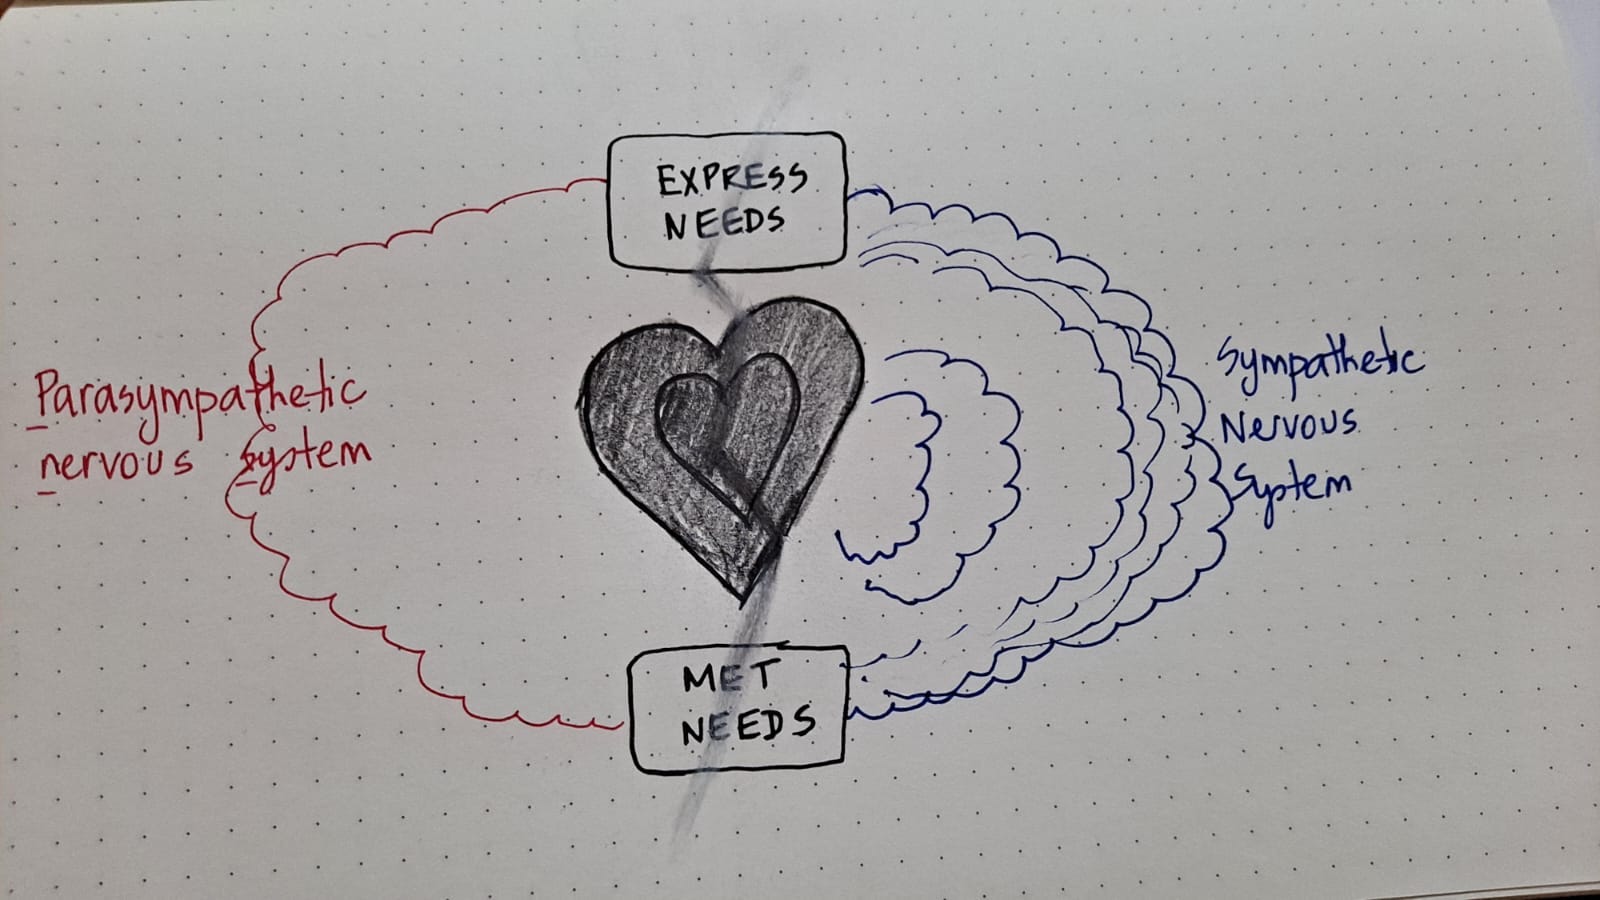 EXPRESS
NEEDS
Parasympathetic
nervous system
Sympathetic
Nervous
System
MET
NEEDS